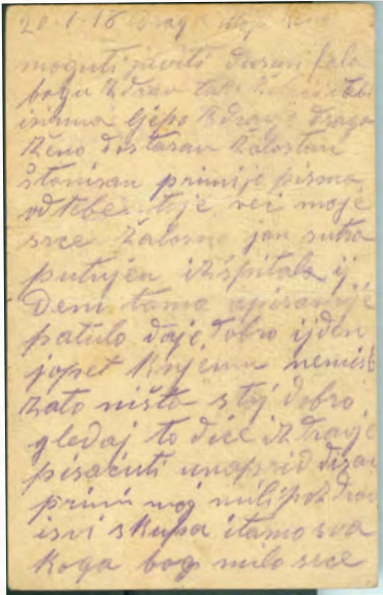 20-1-18 Draga moja ženo
mogu ti javiti da sam fala
bogu zdrav tako želim i tebi
isima ljepo zdravje draga
ženo dosta sam žalostan
što nisam primije pisma
od tebe tije već moje
srce žalosno jan sutra
putujen iz špitala ij
Deni tamo
patulo daje dobro ijden
jopet knjemu nemisli
zato ništa stoj dobro
gledaj to dice izdravje
pisaćuti unaprid
primi moj mili pozdrav
isvi skupa itamo sva
koga bog milo srce